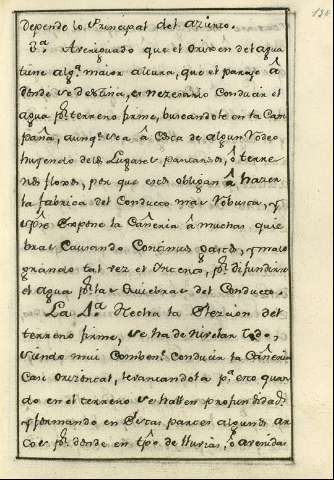 130
depende lo Principal del asunto.
3ª. Averiguado que el Orixen del agua
tiene algª. maior altura, que el paraje â
donde se destina, es nezesario Conducir el
agua pʳ. terreno firme, buscandole en la Cam
paña, aunqᵉ. sea â Costa de algun Rodeo
huyendo de los Lugares pantanosos, ô terre
nos floxos, por que estos obligan â hazer
la fabrica del Conducto mas robusta, y
expone la Cañeria â muchas quie
bras Causando Continuos gastos, y malo
grando tal vez el Yntento, pʳ. difundirse
el agua pʳ. las Quiebras del Conducto.
La 4ª. Hecha la Elezion del
terreno firme, se ha de nivelar todo,
siendo mui Combenᵗᵉ. Conducir la Cañeria
Casi Orizontal, levantandola pª. esto quan
do en el terreno se hallen profundidadˢ.
y formando en estas partes algunos ar
cos pʳ. donde en tpô. de lluvias, ô avenidas